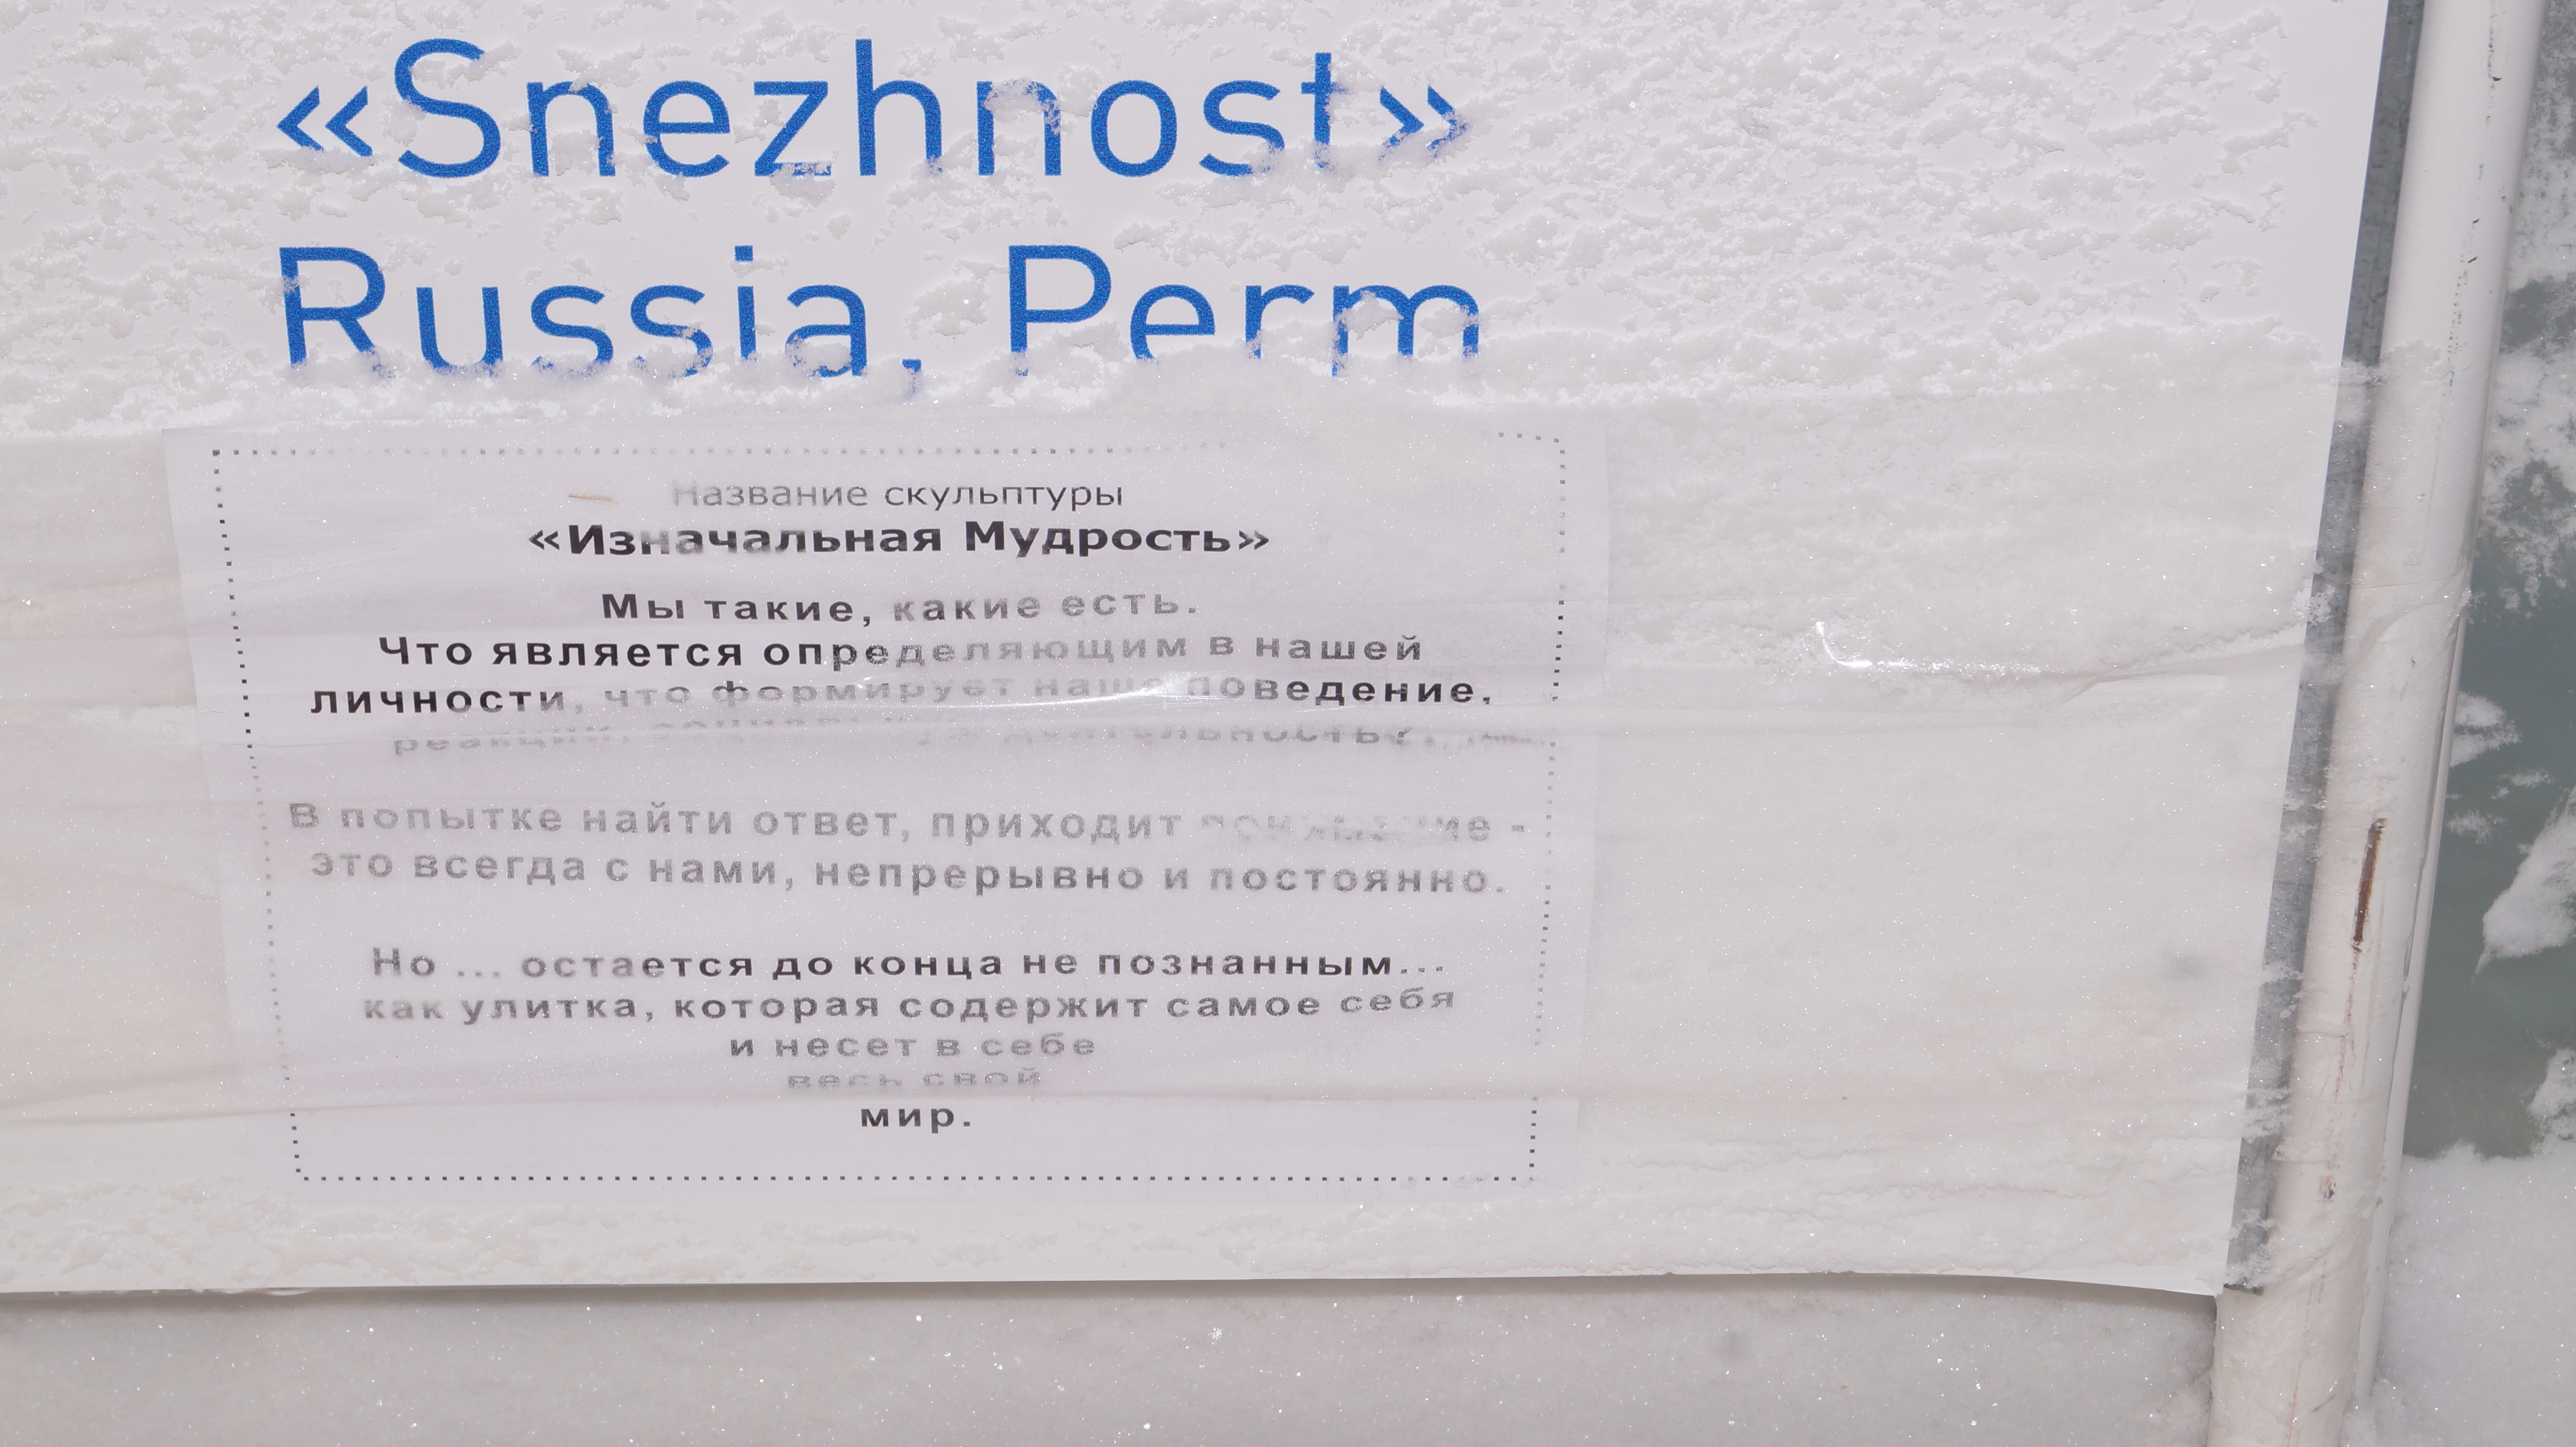 «Snezhnost»
Russia, Perm
Название скульптуры
«Изначальная Мудрость»
Мы такие, какие есть.
Что является определяющим в нашей
личности, что формирует наше поведение,
реакции, деятельность?
В попытке найти ответ, приходит понимание -
это всегда с нами, непрерывно и постоянно.
Но ... остается до конца не познанным...
как улитка, которая содержит самое себя
и несет в себе
весь свой
мир.